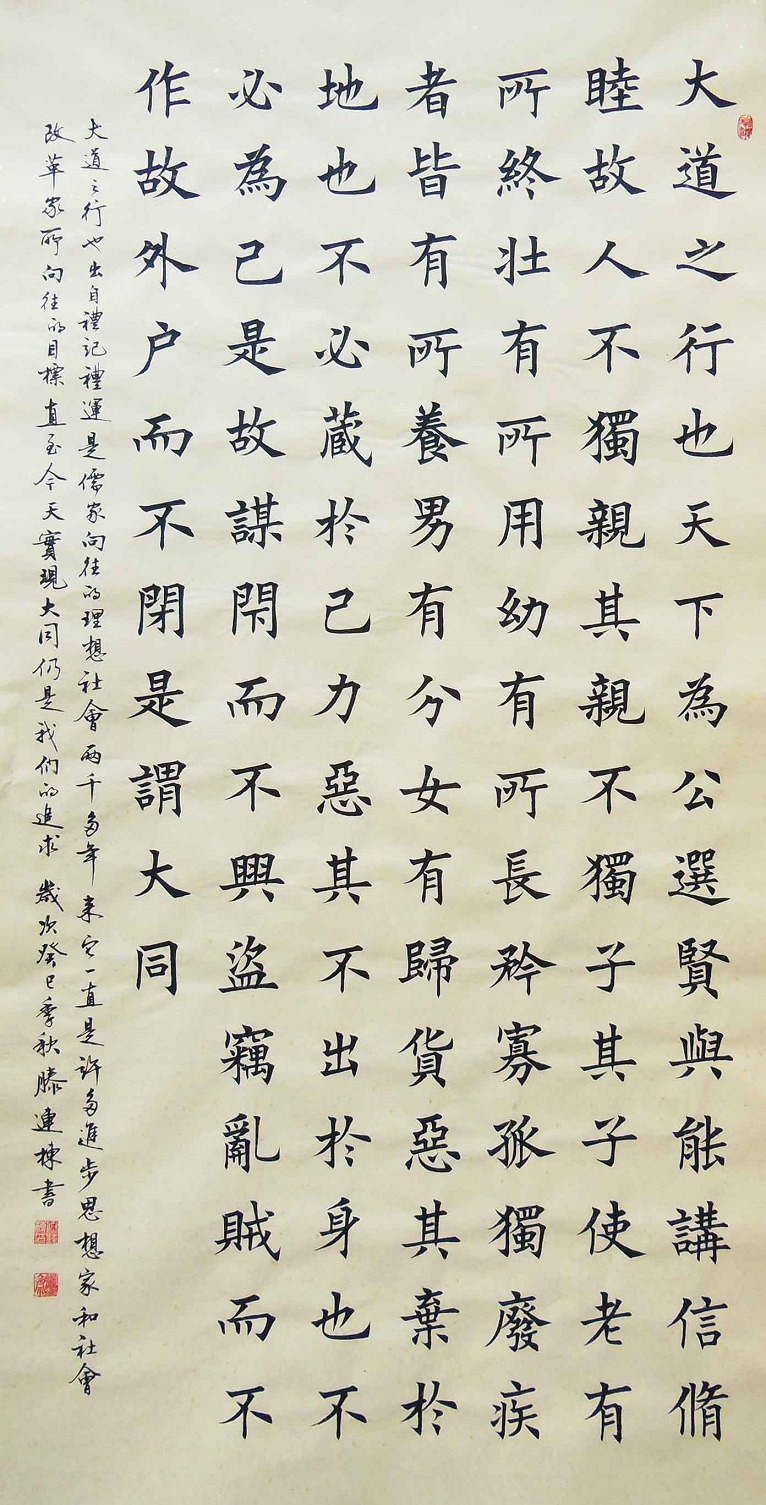 大道之行也天下為公選賢與能講信脩
睦故人不獨親其親不獨子其子使老有
所終壯有所用幼有所長矜寡孤獨廢疾
者皆有所養男有分女有歸貨惡其棄於
地也不必藏於己力惡其不出於身也不
必為己是故謀閉而不興盜竊亂賊而不
作故外户而不閉是謂大同
大道之行也出自禮記禮運是儒家向往的理想社會兩千多年来它一直是許多進步思想家和社會
改革家所向往的目標直至今天實現大同仍是我們的追求 歲次癸巳季秋滕連棟書